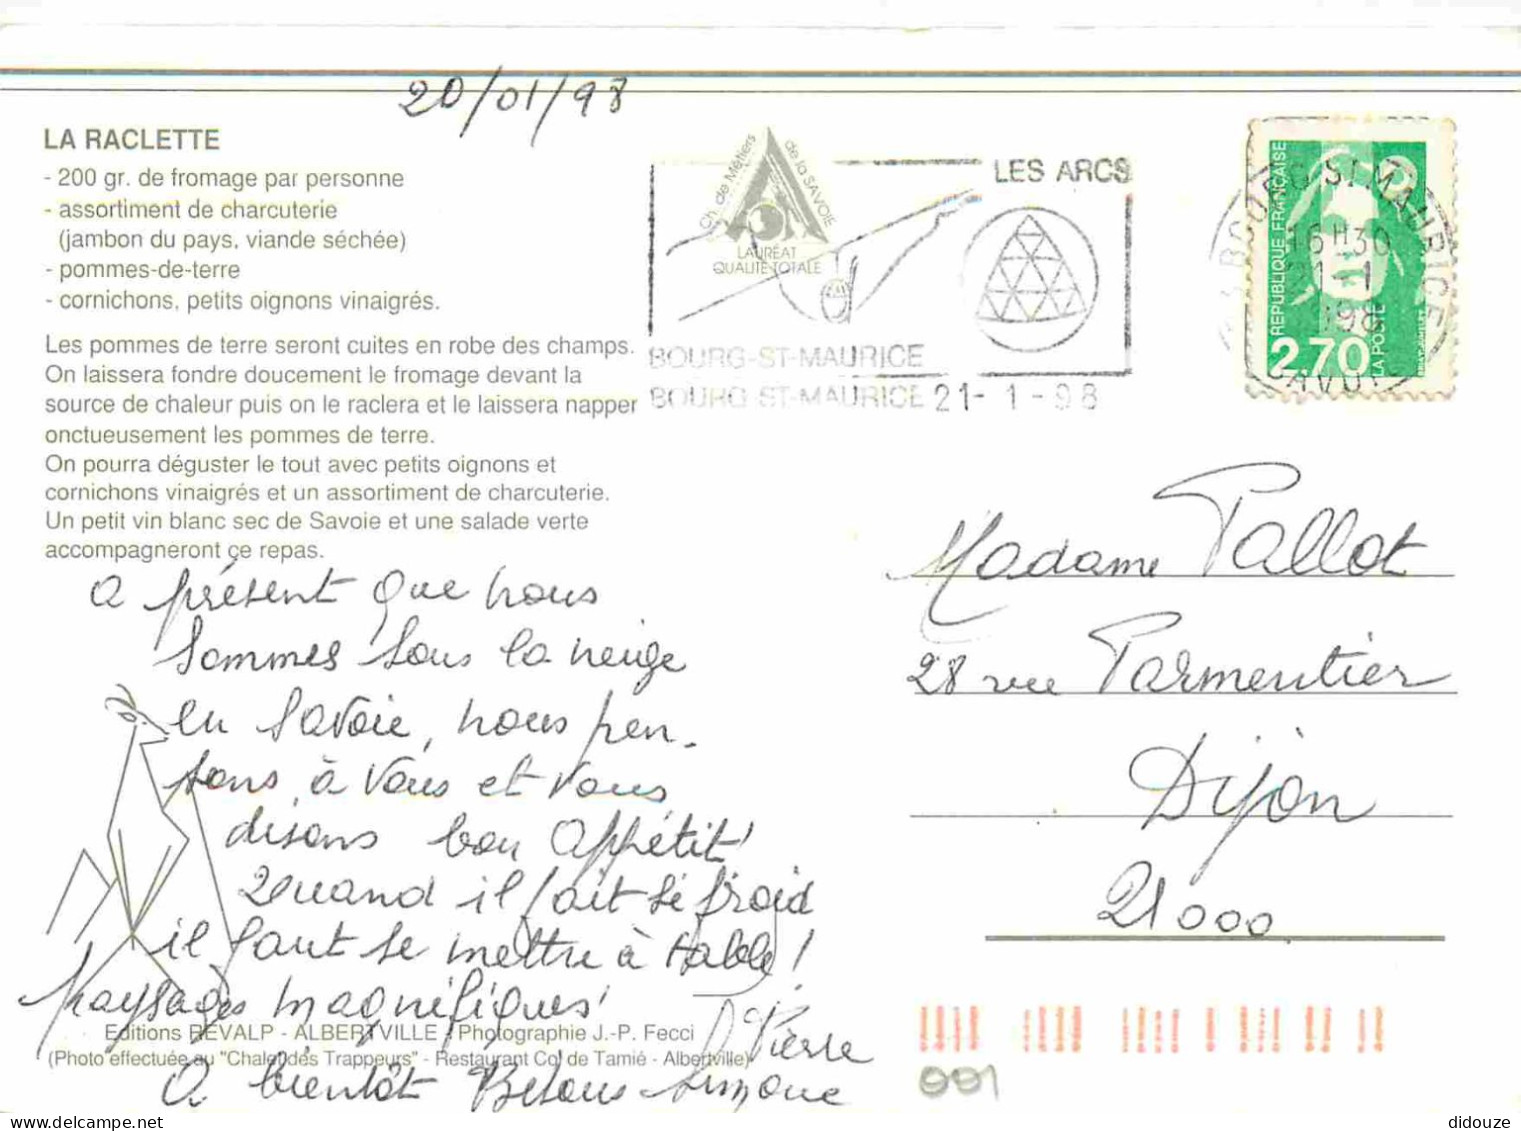 20/01/98
LA RACLETTE
- 200 gr. de fromage par personne
- assortiment de charcuterie
(jambon du pays, viande séchée)
- pommes-de-terre
- cornichons, petits oignons vinaigrés.
Les pommes de terre seront cuites en robe des champs.
On laissera fondre doucement le fromage devant la
source de chaleur puis on le raclera et le laissera napper
onctueusement les pommes de terre.
On pourra déguster le tout avec petits oignons et
cornichons vinaigrés et un assortiment de charcuterie.
Un petit vin blanc sec de Savoie et une salade verte
accompagneront çe repas.
Ch. de Métiers de la SAVOIE
LAURÉAT
QUALITÉ TOTALE
LES ARCS
BOURG-ST-MAURICE
BOURG ST-MAURICE 21-1-98
BOURG ST MAURICE
16H30
21-1
1998
SAVOIE
REPUBLIQUE FRANÇAISE
2,70
LA POSTE
A présent que nous
sommes sous la neige
en Savoie, nous pen-
sons à vous et vous
disons bon appétit!
Quand il fait si froid
il faut se mettre à table!
Paysages magnifiques!
A bientôt Bisous
Pierre
Simone
Editions REVALP - ALBERTVILLE - Photographie J.-P. Fecci
(Photo effectuée au "Chalet des Trappeurs" - Restaurant Col de Tamié - Albertville)
Madame Pallot
28 rue Parmentier
Dijon
21000
001
didouze